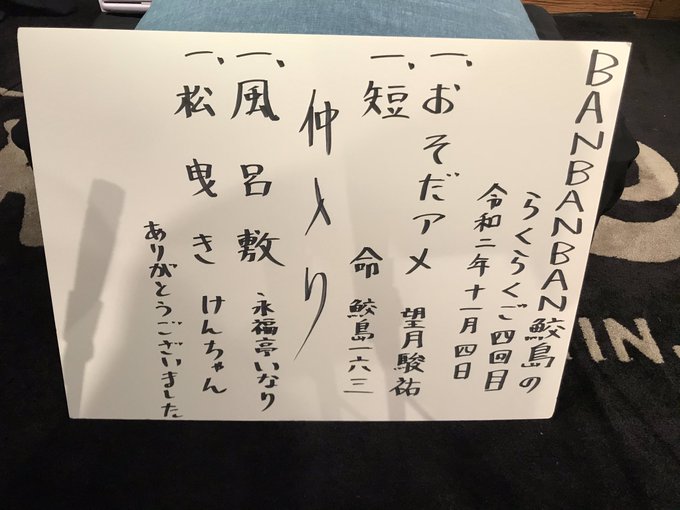 BANBANBAN鮫島の
らくらくご四回目
令和二年十一月四日
一、おそだアメ 望月駿祐
一、短命 鮫島一六三
仲入り
一、風呂敷 永福亭いなり
一、松曳き けんちゃん
ありがとうございました
IN.